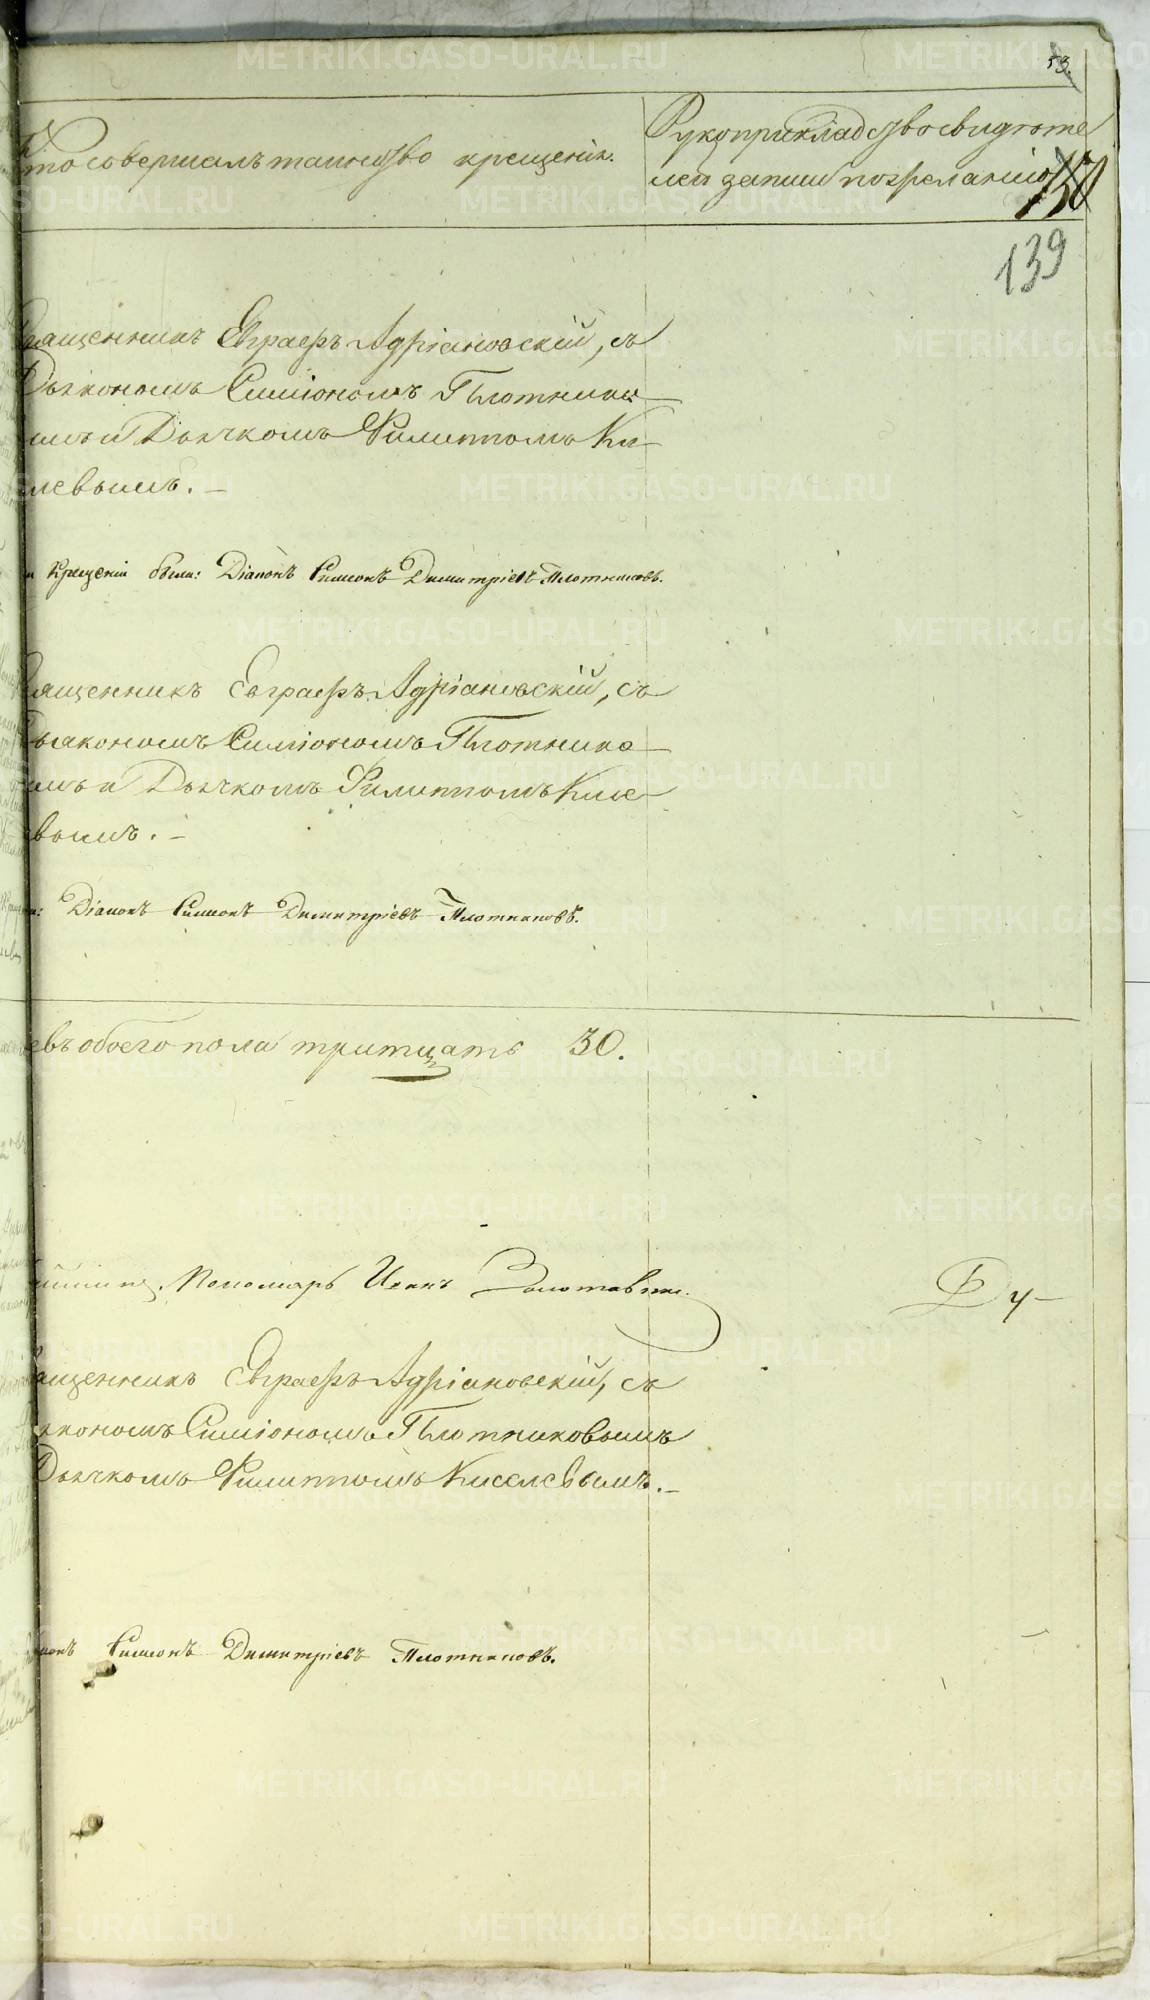 53.
Кто совершалъ таинство крещенія.
Рукоприкладство свидѣте
лей записи по желанію
150
139
Священникъ Евграфъ Адріановскій, съ
Дьякономъ Симіономъ Плотнико
вымъ и Дьячкомъ Филиппомъ Ки
селевымъ. –
крещеніи были: Діаконъ Симеонъ Димитріевъ Плотниковъ.
Священникъ Евграфъ Адріановскій, съ
Дьякономъ Симіономъ Плотнико
вымъ и Дьячкомъ Филиппомъ Кисе
левымъ. –
Діаконъ Симеонъ Димитріевъ Плотниковъ.
обоего пола тритцать 30.
Пономарь Иванъ
Священникъ Евграфъ Адріановскій, съ
Дьякономъ Симіономъ Плотниковымъ
Дьячкомъ Филиппомъ Киселевымъ. –
Діаконъ Симеонъ Димитріевъ Плотниковъ.
METRIKI.GASO-URAL.RU